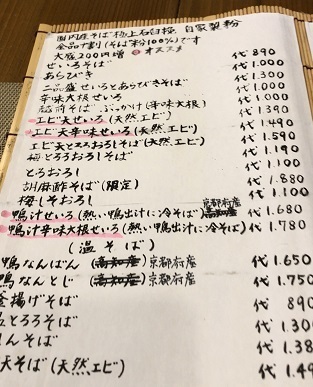 国内産そば 極上石臼挽 自家製粉
全品十割(そば粉100%)です
大盛200円増 オススメ
せいろそば 代 890
あらびき 代 1.000
二品盛せいろとあらびきそば 代 1.300
辛味大根せいろ 代 1.000
越前そば ぶっかけ(辛味大根) 代 1.000
エビ天せいろ(天然エビ) 代 1.390
エビ天辛味せいろ(天然エビ) 代 1.490
エビ天とろろおろしそば(天然エビ) 代 1.590
梅とろろおろしそば 代 1.190
とろおろし 代 1.100
胡麻酢そば(限定) 代 1.880
梅しそおろし 代 1.100
鴨汁せいろ(熱い鴨出汁に冷そば) 京都府産 高知産 代 1.680
鴨汁辛味大根せいろ(熱い鴨出汁に冷そば) 代 1.780
(温そば)
鴨なんばん (高知産) 京都府産 代 1.650
鴨なんとじ (高知産) 京都府産 代 1.750
釜揚げそば 代 890
とろろそば 代 1.30
んそば 代 1.38
天そば(天然エビ) 代 1.49